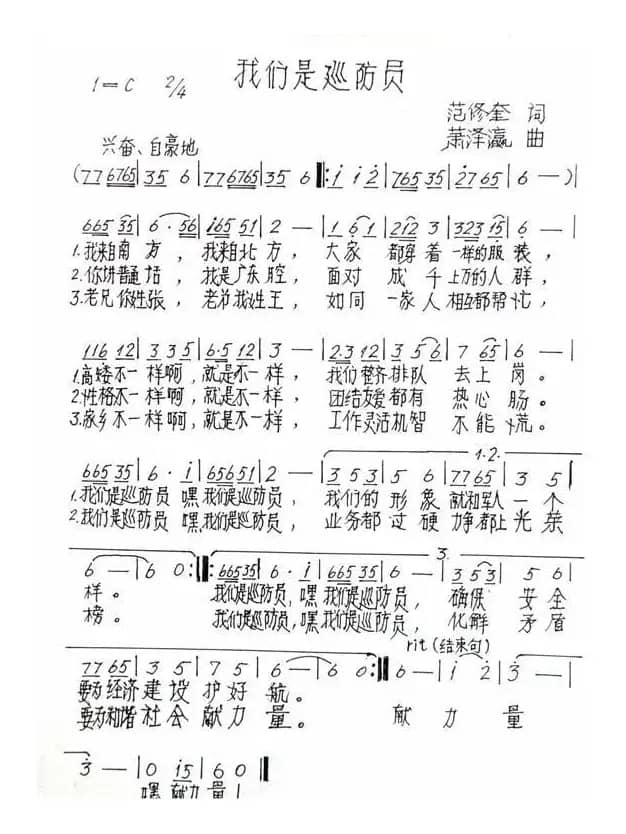 我们是巡防员
1=C 2/4
范修奎 词
萧泽瀛 曲
兴奋、自豪地
(77 6765 | 35 6 | 77 6765 | 35 6 |: i i 2 | 765 35 | 27 65 | 6 — ) |
665 35 | 6 · 56 | i65 51 | 2 — | 1 6 1 | 212 3 | 323 15 | 6 — |
1.我来自南方，我来自北方，大家都穿着一样的服装，
2.你讲普通话，我是广东腔，面对成千上万的人群，
3.老兄你姓张，老弟我姓王，如同一家人相互都帮忙，
116 12 | 3 3 5 | 6·5 12 | 3 — | 2·3 12 | 3 5 6 | 7 65 | 6 — |
1.高矮不一样啊，就是不一样，我们整齐排队去上岗。
2.性格不一样啊，就是不一样，团结友爱都有热心肠。
3.家乡不一样啊，就是不一样，工作灵活机智不能慌。
1.2.
665 35 | 6 · i | 656 51 | 2 — | 3 5 3 | 5 6 | 77 65 | 3 5 |
1.我们是巡防员嘿我们是巡防员，我们的形象就和军人一个
2.我们是巡防员嘿我们是巡防员，业务都过硬力争都上光荣
3.
6 — | 6 0 :|: 665 35 | 6 · i | 665 35 | 6 — | 3 5 3 | 5 6 |
样。我们是巡防员，嘿我们是巡防员，确保安全
榜。我们是巡防员，嘿我们是巡防员，化解矛盾
rit(结束句)
77 65 | 3 5 | 7 5 | 6 — | 6 0 :| 6 — | i 2 | 3 — |
要为经济建设护好航。
要为和谐社会献力量。献力量
3 — | 0 i5 | 6 0 ‖
嘿献力量！